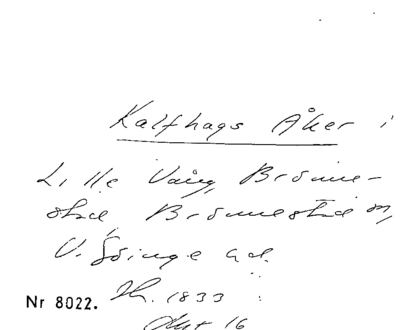 Kalfhags Åker i
Lille Vång, Brönne-
stad Brönnestad sn,
V. Göinge hd.
Nr 8022. Sk. 1833
Akt 16